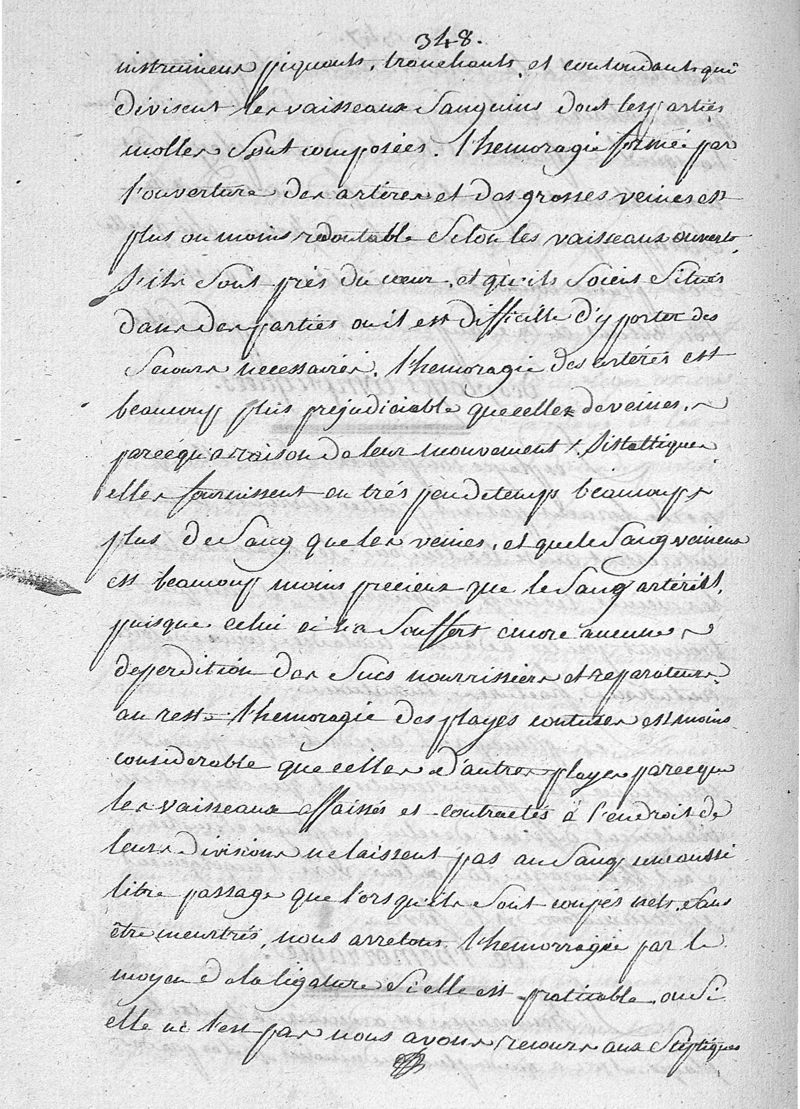 348.
instrumens piquants, tranchants, et contondants qui
divisent les vaisseaux Sanguins dont les parties
molles Sont composées. l'hemoragie formée par
l'ouverture des artères et des grosses veines est
plus ou moins redoutable Selon les vaisseaux ouverts,
s'ils Sont près du cœur, et qu'ils Soient Situés
dans des parties ou il est difficille d'y porter des
Secours necessaires. l'hemoragie des artères est
beaucoup plus prejudiciable que celles de veines,
parcequ'a raison de leur mouvement Sistaltique
elles fournissent en très peu de temps beaucoup
plus de Sang que les veines, et que le Sang veineux
est beaucoup moins precieux que le Sang artériel,
puisque celui ci n'a Souffert encore aucune
deperdition des Sucs nourrissiers et reparateurs
au reste l'hemoragie des playes contuses est moins
considerable que celles d'autres playes parceque
les vaisseaux affaissés et contractés à l'endroit de
leurs divisions ne laissent pas au Sang un aussi
libre passage que lorsqu'ils Sont coupés nets, Sans
être meurtrés, nous arretons l'hemorragie par le
moyen de la ligature Si elle est pratitable, ou Si
elle ne l'est pas nous avons recours aux Stiptiques